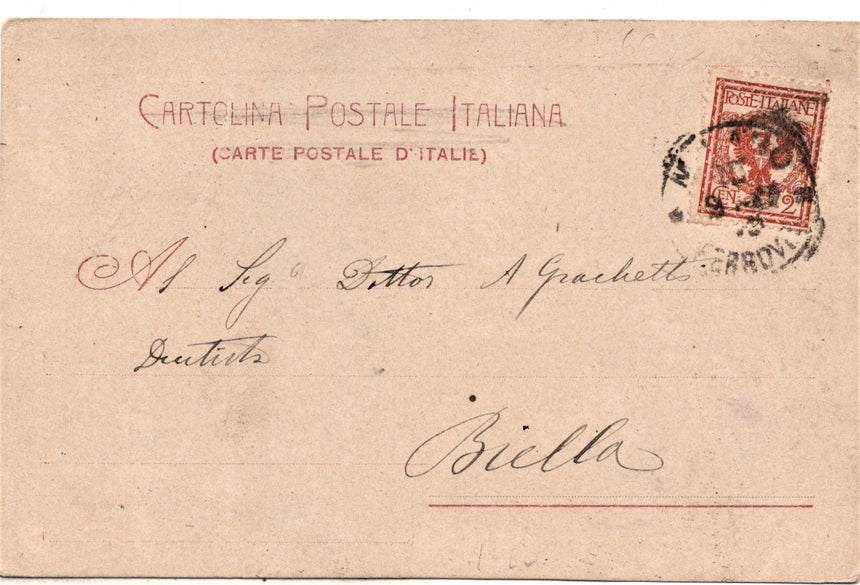 CARTOLINA POSTALE ITALIANA
(CARTE POSTALE D'ITALIE)
POSTE·ITALIANE
CEN. 2
Al Sigr Dottor A Grachetti
Dentista
Biella